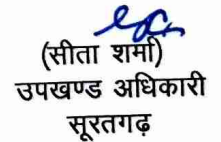 (सीता शर्मा)
उपखण्ड अधिकारी
सूरतगढ़